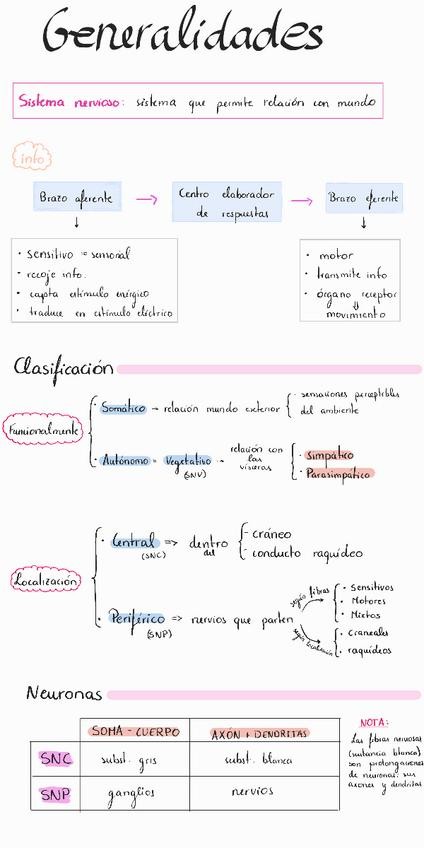 Generalidades
Sistema nervioso: sistema que permite relación con mundo
info
Brazo aferente
Centro elaborador
de respuestas
Brazo eferente
· sensitivo = sensorial
· recoje info.
· capta estímulo enérgico
· traduce en estímulo eléctrico
· motor
· transmite info
· órgano receptor
movimiento
Clasificación
Funcionalmente
· Somático → relación mundo exterior
· sensaciones perceptibles
del ambiente
· Autónomo = Vegetativo
(SNV)
relación con
las
vísceras
· Simpático
· Parasimpático
Localización
· Central => dentro
(SNC)
del
- cráneo
- conducto raquídeo
· Periférico => nervios que parten
(SNP)
según fibras
· Sensitivos
· Motores
· Mixtos
según localización
· craneales
· raquídeos
Neuronas
SOMA - CUERPO
AXÓN + DENDRITAS
SNC
subst. gris
subst. blanca
SNP
ganglios
nervios
NOTA:
Las fibras nerviosas
(sustancia blanca)
son prolongaciones
de neuronas: sus
axones y dendritas